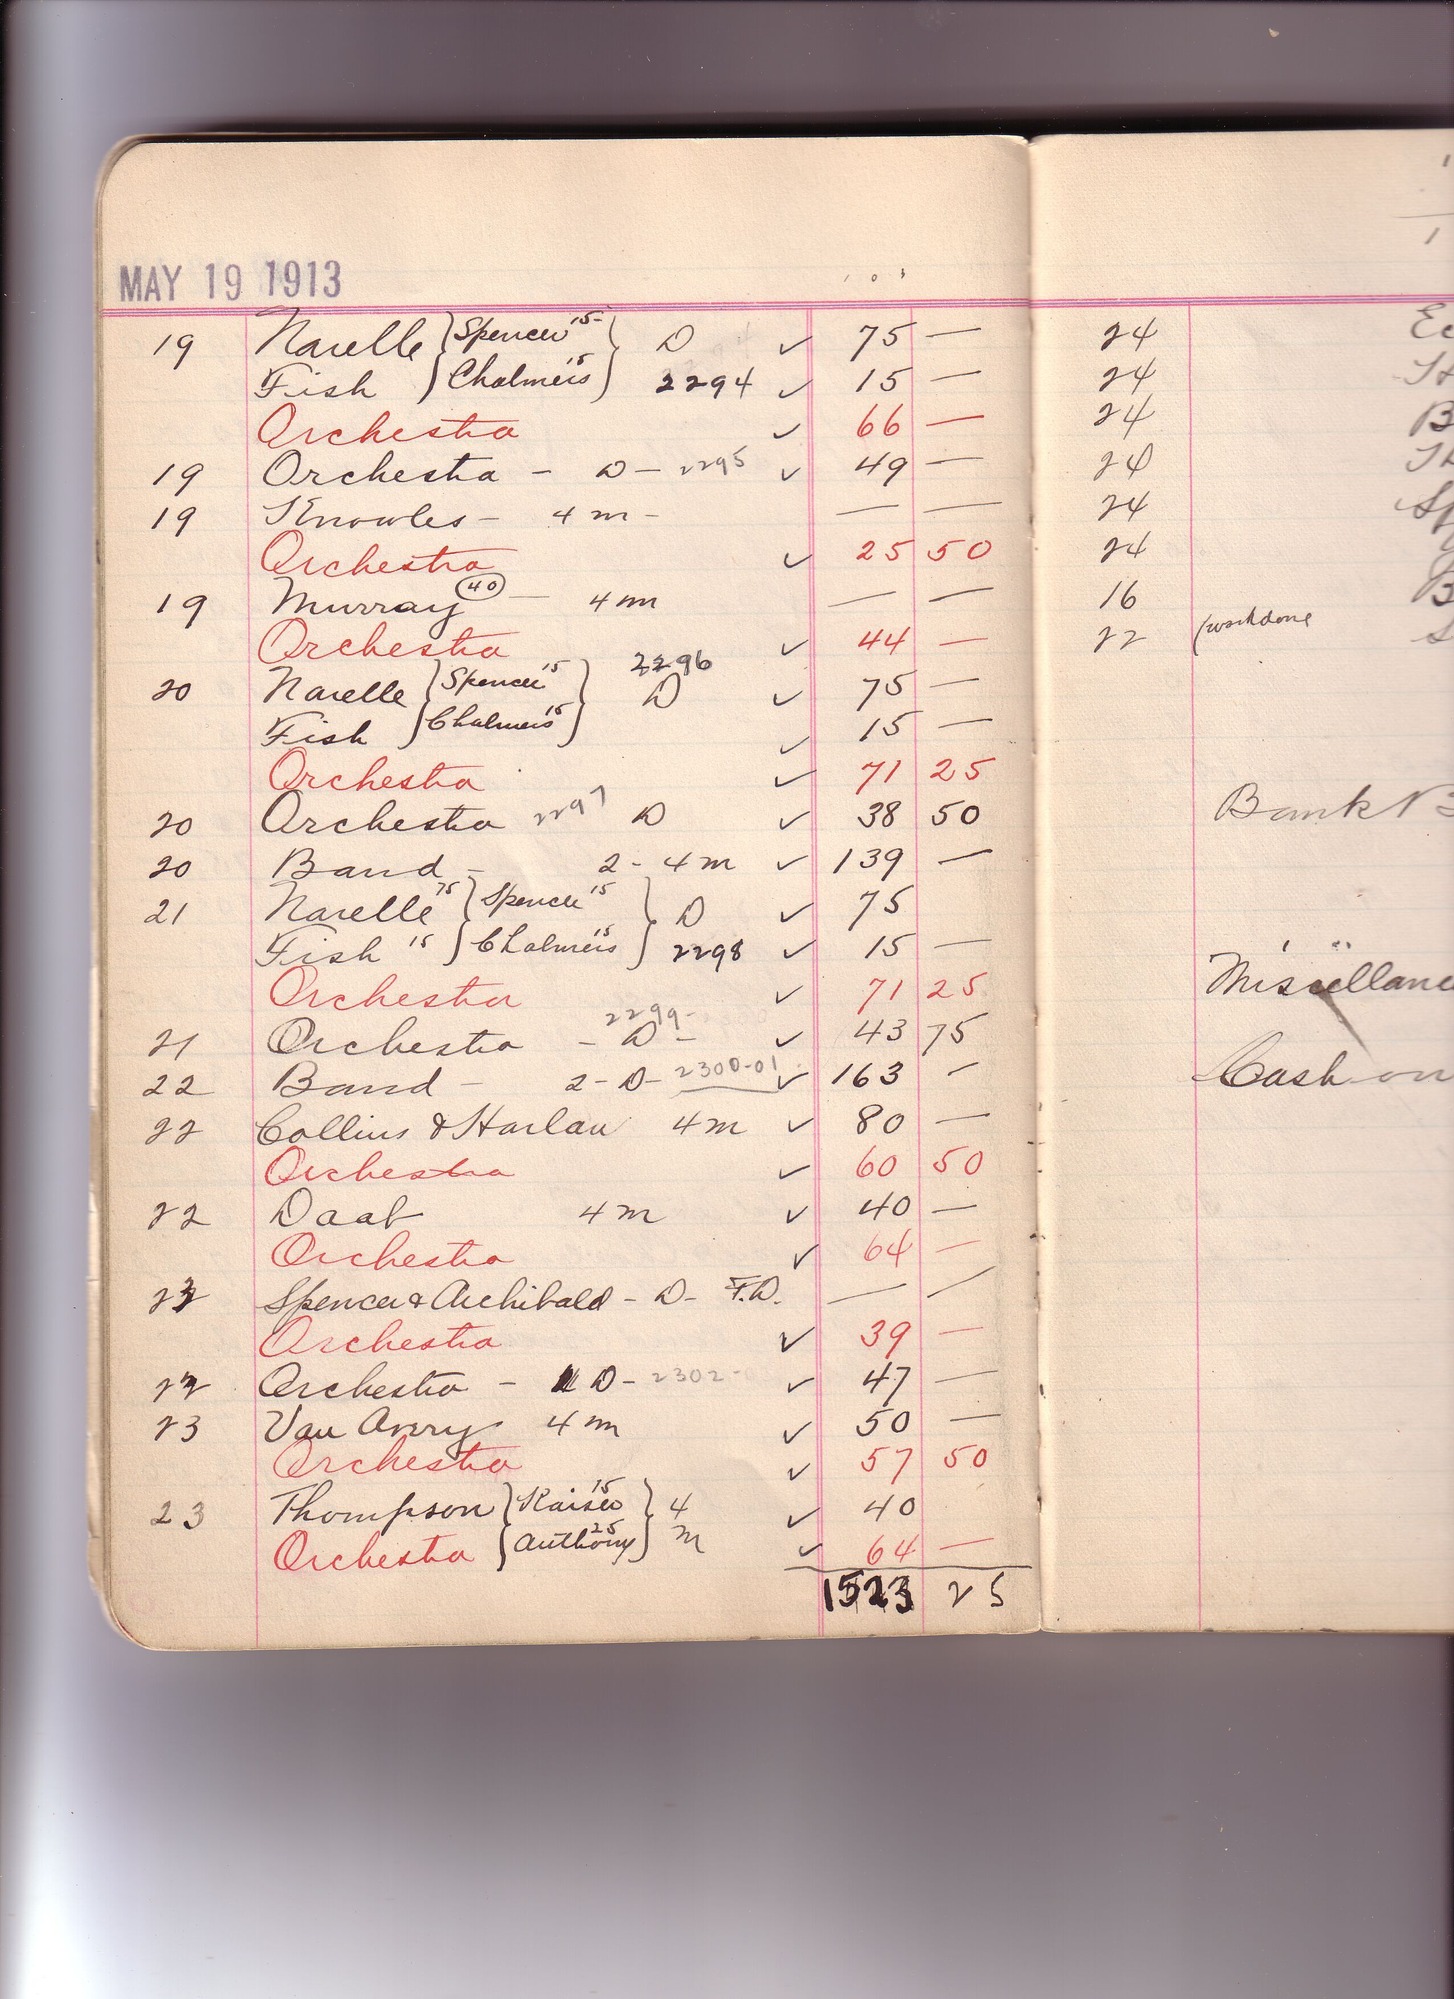 MAY 19 1913
19 Narelle { Spencer 15 } D ✓ 75 —
Fish } Chalmers 15 } 2294 ✓ 15 —
Orchestra ✓ 66 —
19 Orchestra - D - 2295 ✓ 49 —
19 Knowles - 4 m - — —
Orchestra ✓ 25 50
19 Murray 40 — 4 m — —
Orchestra ✓ 44 —
2296
20 Narelle } Spencer 15 } D ✓ 75 —
Fish } Chalmers 15 } ✓ 15 —
Orchestra ✓ 71 25
20 Orchestra 2297 D ✓ 38 50
20 Band - 2 - 4 m ✓ 139 —
21 Narelle 75 } Spencer 15 } D ✓ 75
Fish 15 } Chalmers 15 } 2298 ✓ 15 —
Orchestra ✓ 71 25
2299-
21 Orchestra - D - ✓ 43 75
22 Band - 2 - D - 2300-01 ✓ 163 —
22 Collins & Harlan 4 m ✓ 80 —
Orchestra ✓ 60 50
22 Daab 4 m ✓ 40 —
Orchestra ✓ 64 —
23 Spencer & Archibald - D - F.D. — —
Orchestra ✓ 39 —
Orchestra - D - 2302- ✓ 47 —
23 Van Avery 4 m ✓ 50 —
Orchestra ✓ 57 50
23 Thompson { Kaiser 15 } 4 ✓ 40
Orchestra { Anthony 25 } m ✓ 64 —
1523 25
24
24
24
24
24
24
16
22
Bank
Cash on